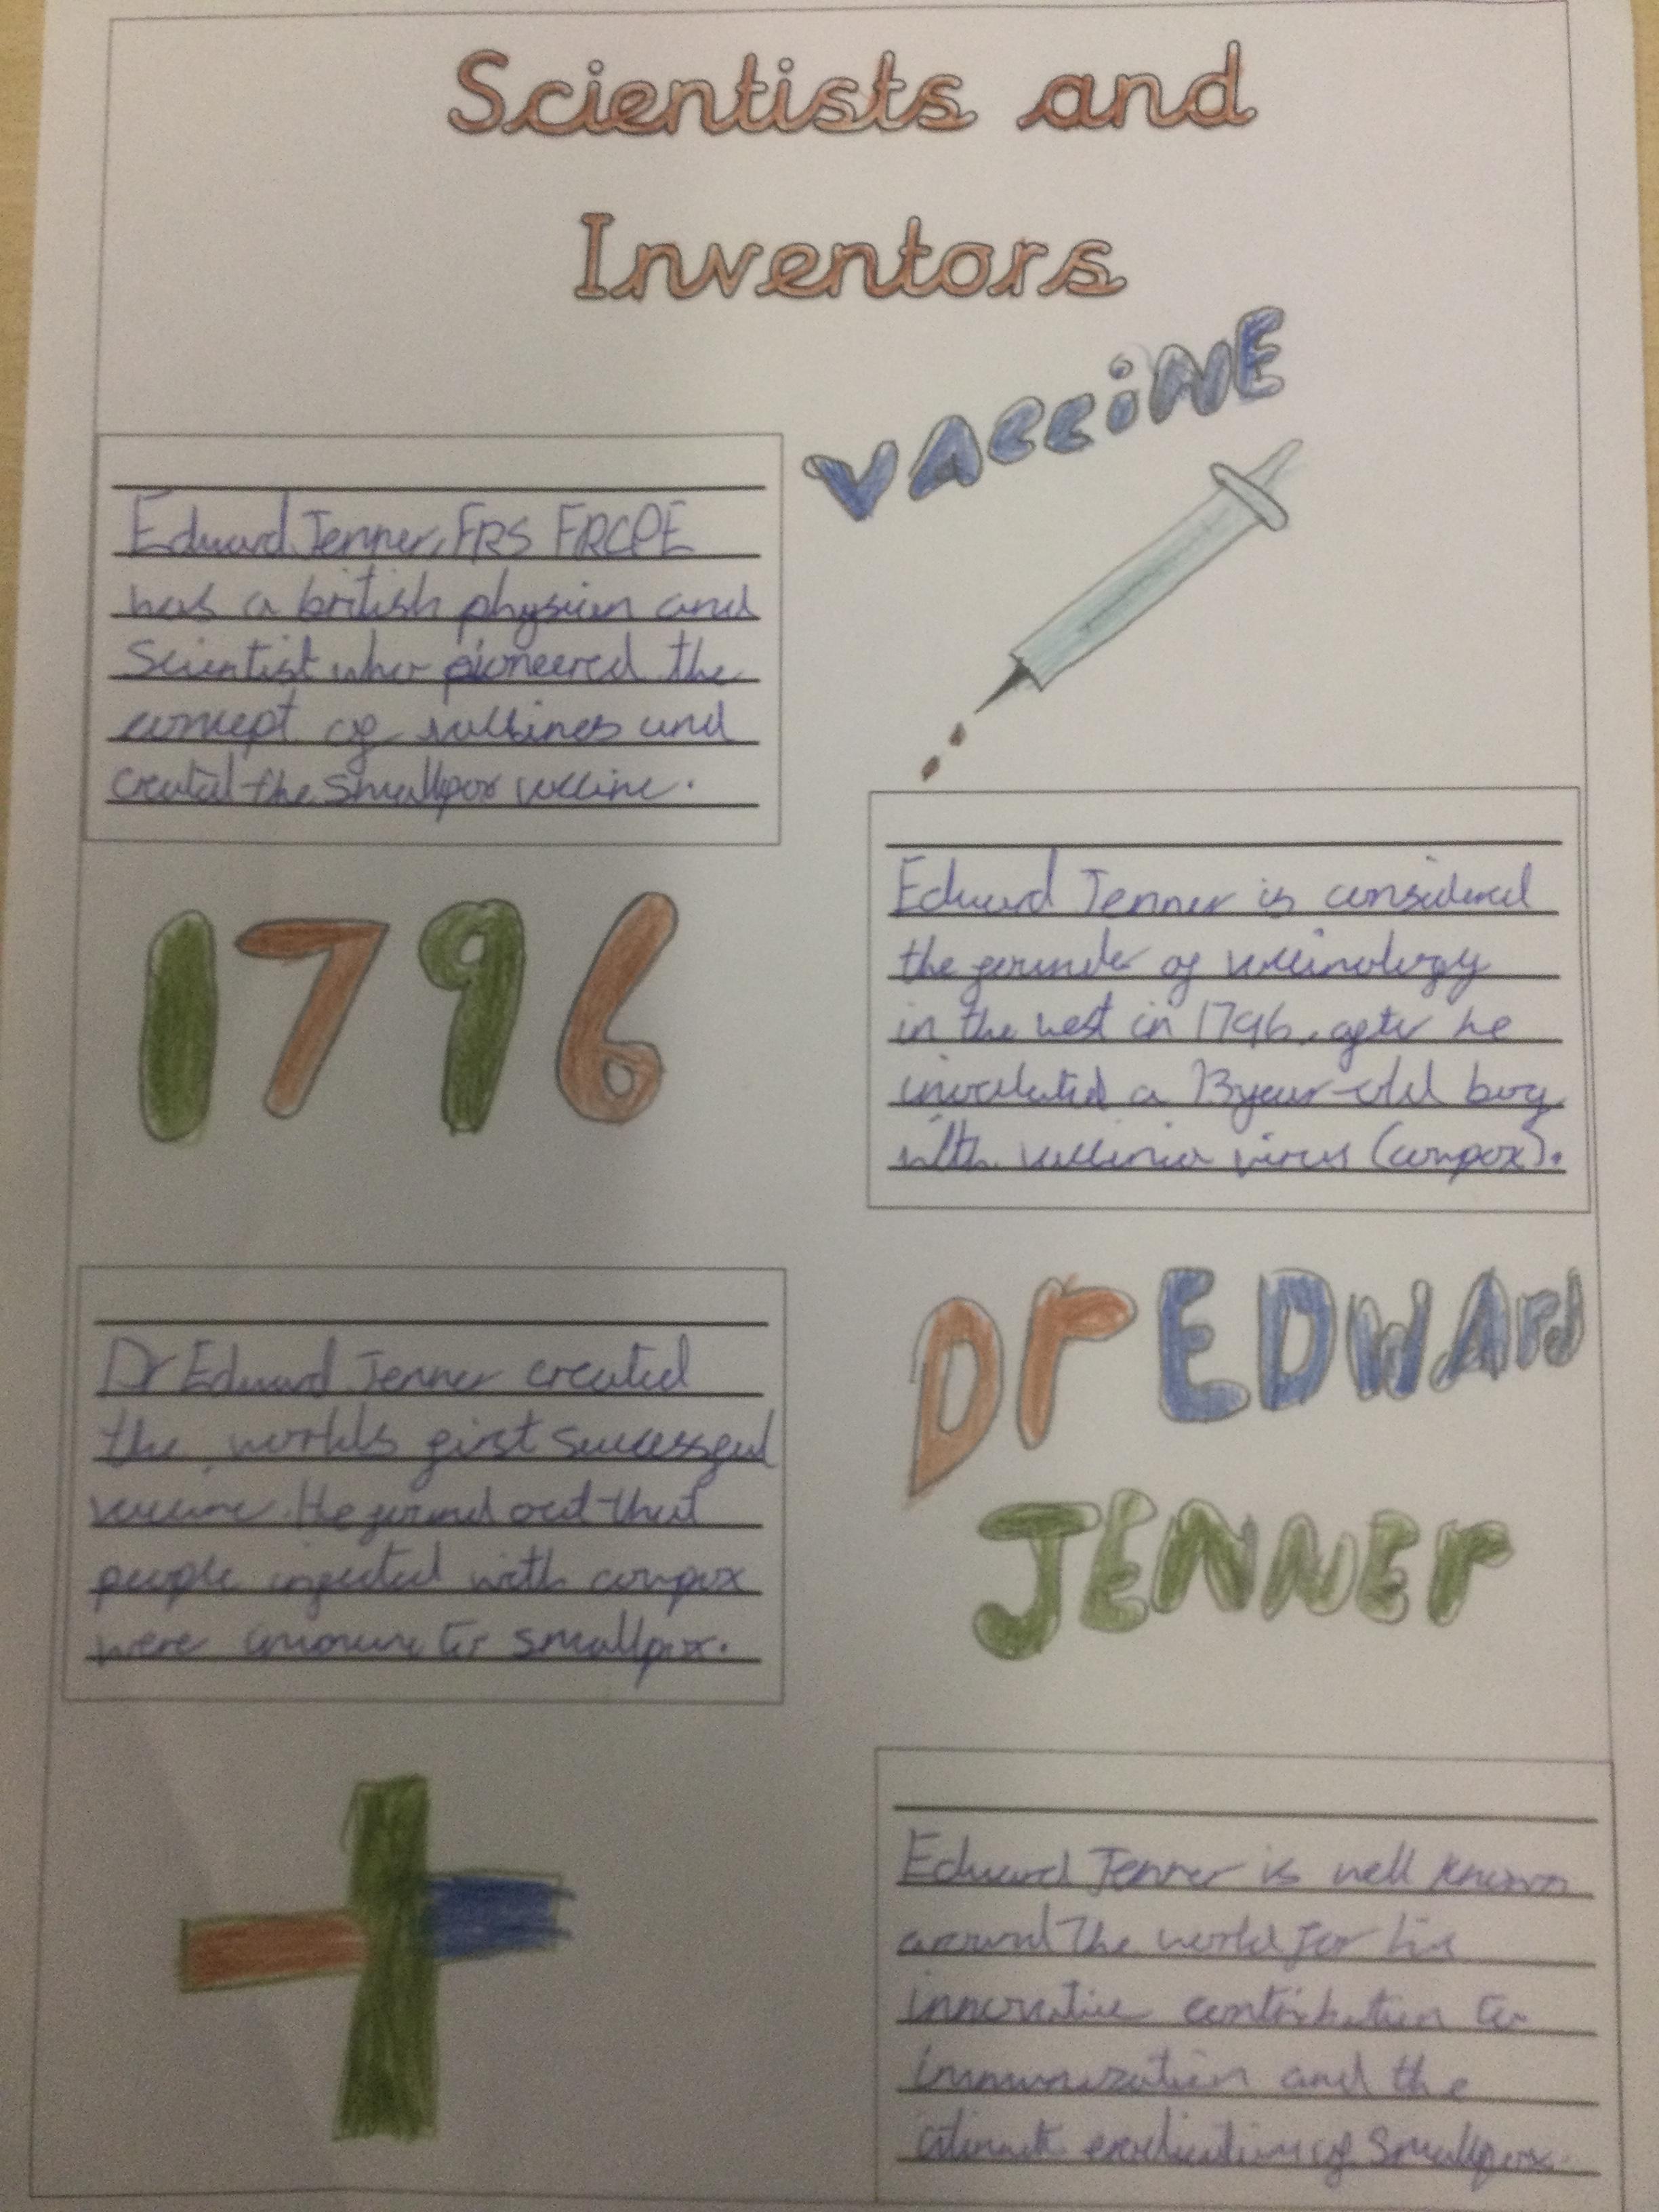 Scientists and
Inventors
VACCiNE
Edward Jenner, FRS FRCPE
was a british physian and
Scientist who pioneered the
concept of vaccines and
created the Smallpox vaccine.
1796
Edward Jenner is considered
the founder of vaccinology
in the west in 1796, after he
inoculated a 13 year-old boy
with vaccinia virus (cowpox).
Dr Edward Jenner created
the worlds first successful
vaccine. He found out that
people injected with cowpox
were immune to smallpox.
Dr EDWArd
JENNEr
Edward Jenner is well known
around the world for his
innovative contribution to
immunization and the
eradication of Smallpox.